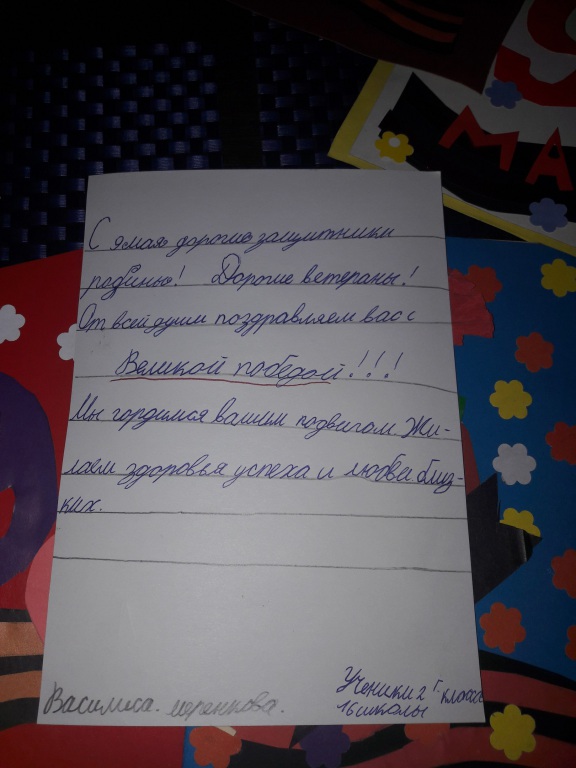 МА
С 9мая дорогие защитники
родины! Дорогие ветераны!
От всей души поздравляем вас с
Великой победой!!!
Мы гордимся вашим подвигом. Жи-
лаем здоровья успеха и любви близ-
ких.
Ученики 2 Г. класса
16 школы
Василиса.